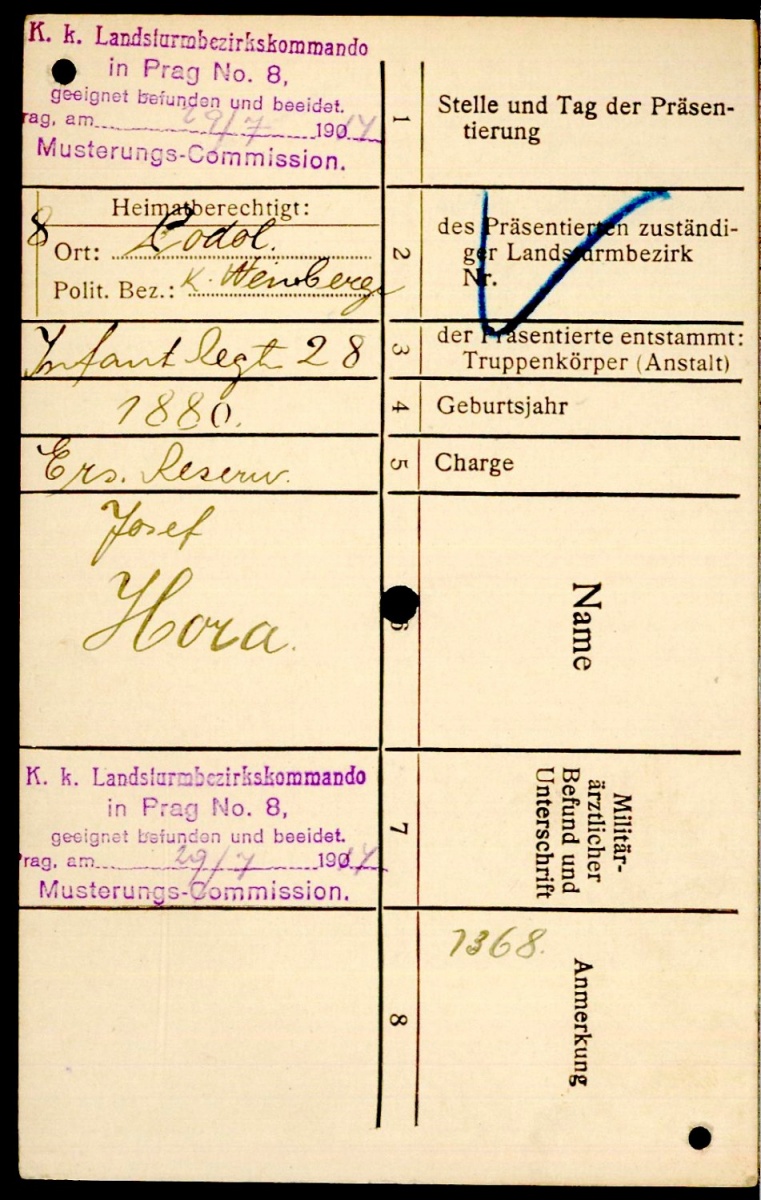 K. k. Landsturmbezirkskommando
in Prag No. 8,
geeignet befunden und beeidet.
rag, am 29/7 1917
Musterungs-Commission.
1
Stelle und Tag der Präsen-
tierung
Heimatberechtigt:
8
Ort: Podol.
Polit. Bez.: K. Weinberge
2
des Präsentierten zuständi-
ger Landsturmbezirk
Nr.
Infant Regt 28
3
der Präsentierte entstammt:
Truppenkörper (Anstalt)
1880.
4
Geburtsjahr
Ers. Reserv.
5
Charge
Josef
Hora.
6
Name
K. k. Landsturmbezirkskommando
in Prag No. 8,
geeignet befunden und beeidet.
Prag, am 29/7 1917
Musterungs-Commission.
7
Militär-
ärztlicher
Befund und
Unterschrift
8
1368.
Anmerkung